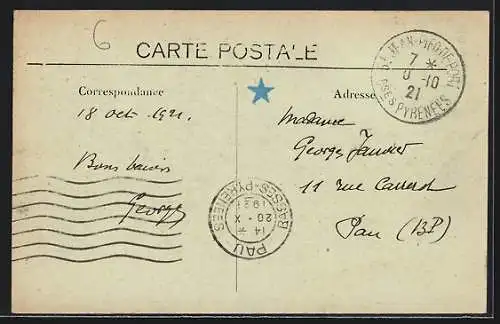 6
CARTE POSTALE
Correspondance
Adresse
18 Oct. 1921.
Bons baisers
Georges
Madame
Georges Janvier
11 rue
Pau (BP)
ST JEAN-PIED-DE-PORT
7 *
10
21
BSES PYRENEES
PAU
14 *
20 - X
1921
BASSES-PYRENEES